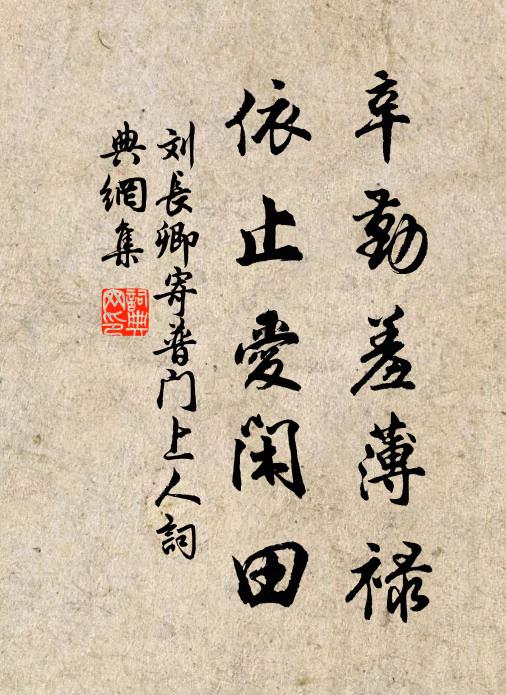 辛勤羞薄禄
依止爱闲田
刘长卿寄普门上人词
典網集
詞典
网印